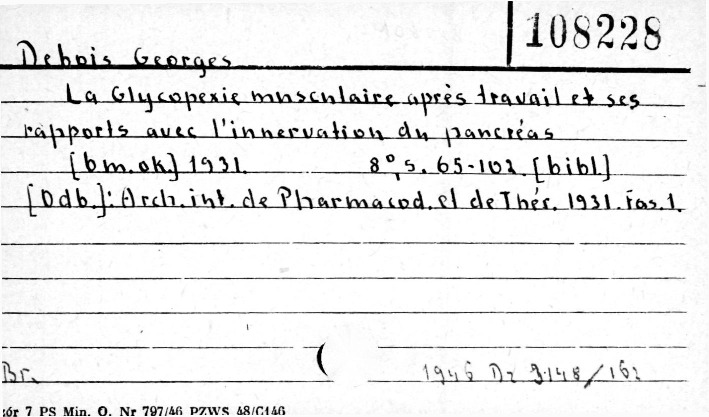 108228
Debois Georges
La Glycopexie musculaire après travail et ses
rapports avec l'innervation du pancréas
[bm.ok.] 1931. 8°, s. 65-102. [bibl.]
[Odb.]: Arch. int. de Pharmacod. et de Thér. 1931. Fas. 1.
Br. 1946 Dz 3148/162
zór 7 PS Min. O. Nr 797/46 PZWS 48/C146